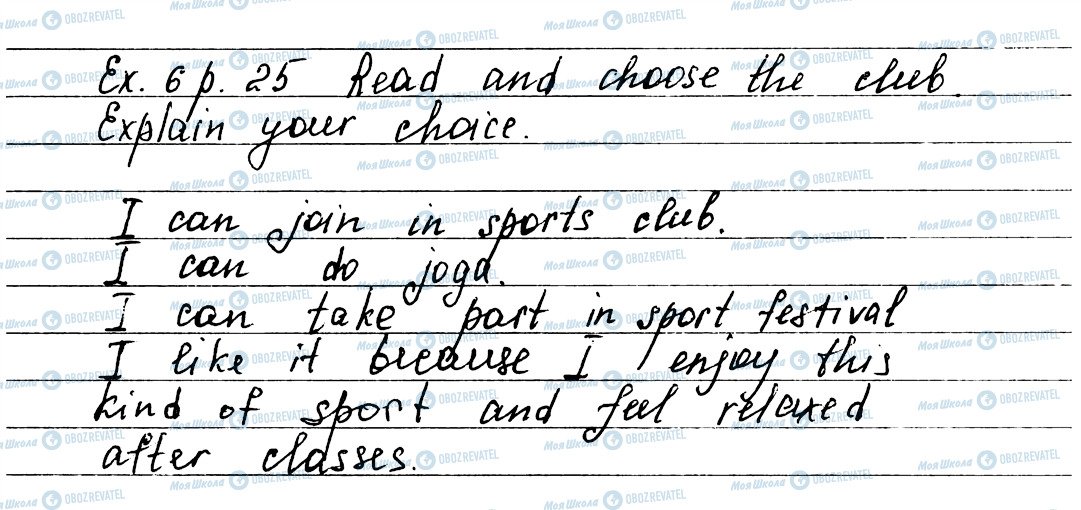 Ex. 6 p. 25 Read and choose the club.
Explain your choice.
I can join in sports club.
I can do joga.
I can take part in sport festival
I like it because I enjoy this
kind of sport and feel relaxed
after classes.
Моя Школа OBOZREVATEL